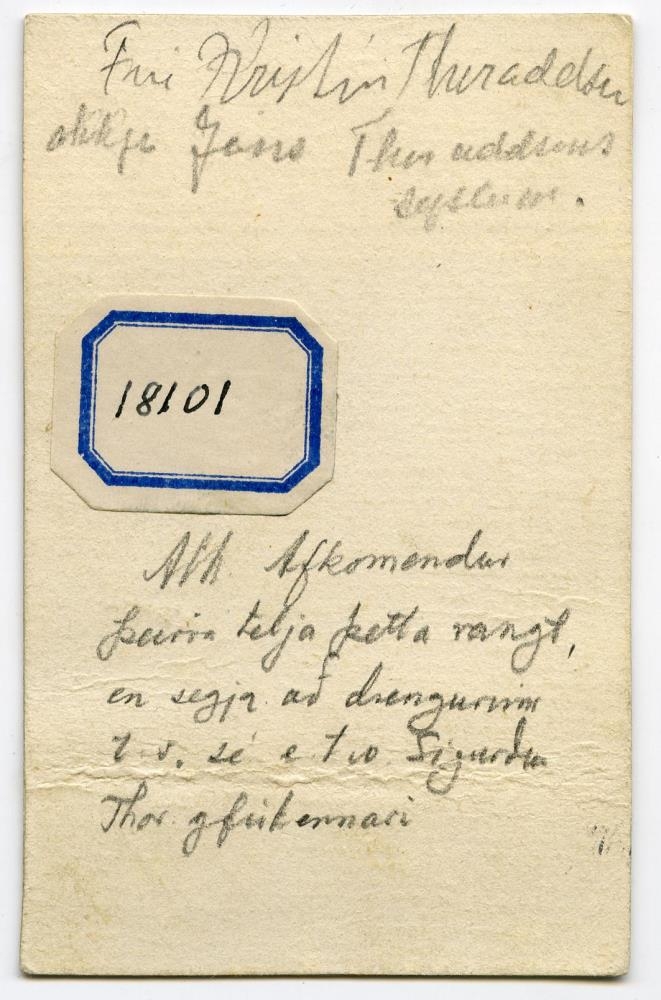 Frú Kristín Thoroddsen
ekkja Jóns Thoroddsens
sýslum.
18101
Ath Afkomendur
þeirra telja þetta rangt,
en segja að drengurinn
t.v. sé e.t.v. Sigurður
Thor. yfirkennari